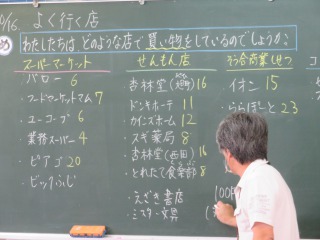 /16 よく行く店
め わたしたちは どのような店で買い物をしているのでしょうか。
スーパーマーケット
・バロー 6
・フードマーケットマム 7
・ユーコープ 6
・業務スーパー 4
・ピアゴ 20
・ビッグふじ
せんもん店
・杏林堂 16
・ドンキホーテ 11
・カインズホーム 12
・スギ薬局 8
・杏林堂(西田) 16
・とれたて食楽部 8
・えざき書店
・ミスター文具
そう合商業しせつ
・イオン 15
・ららぽーと 23
・100円